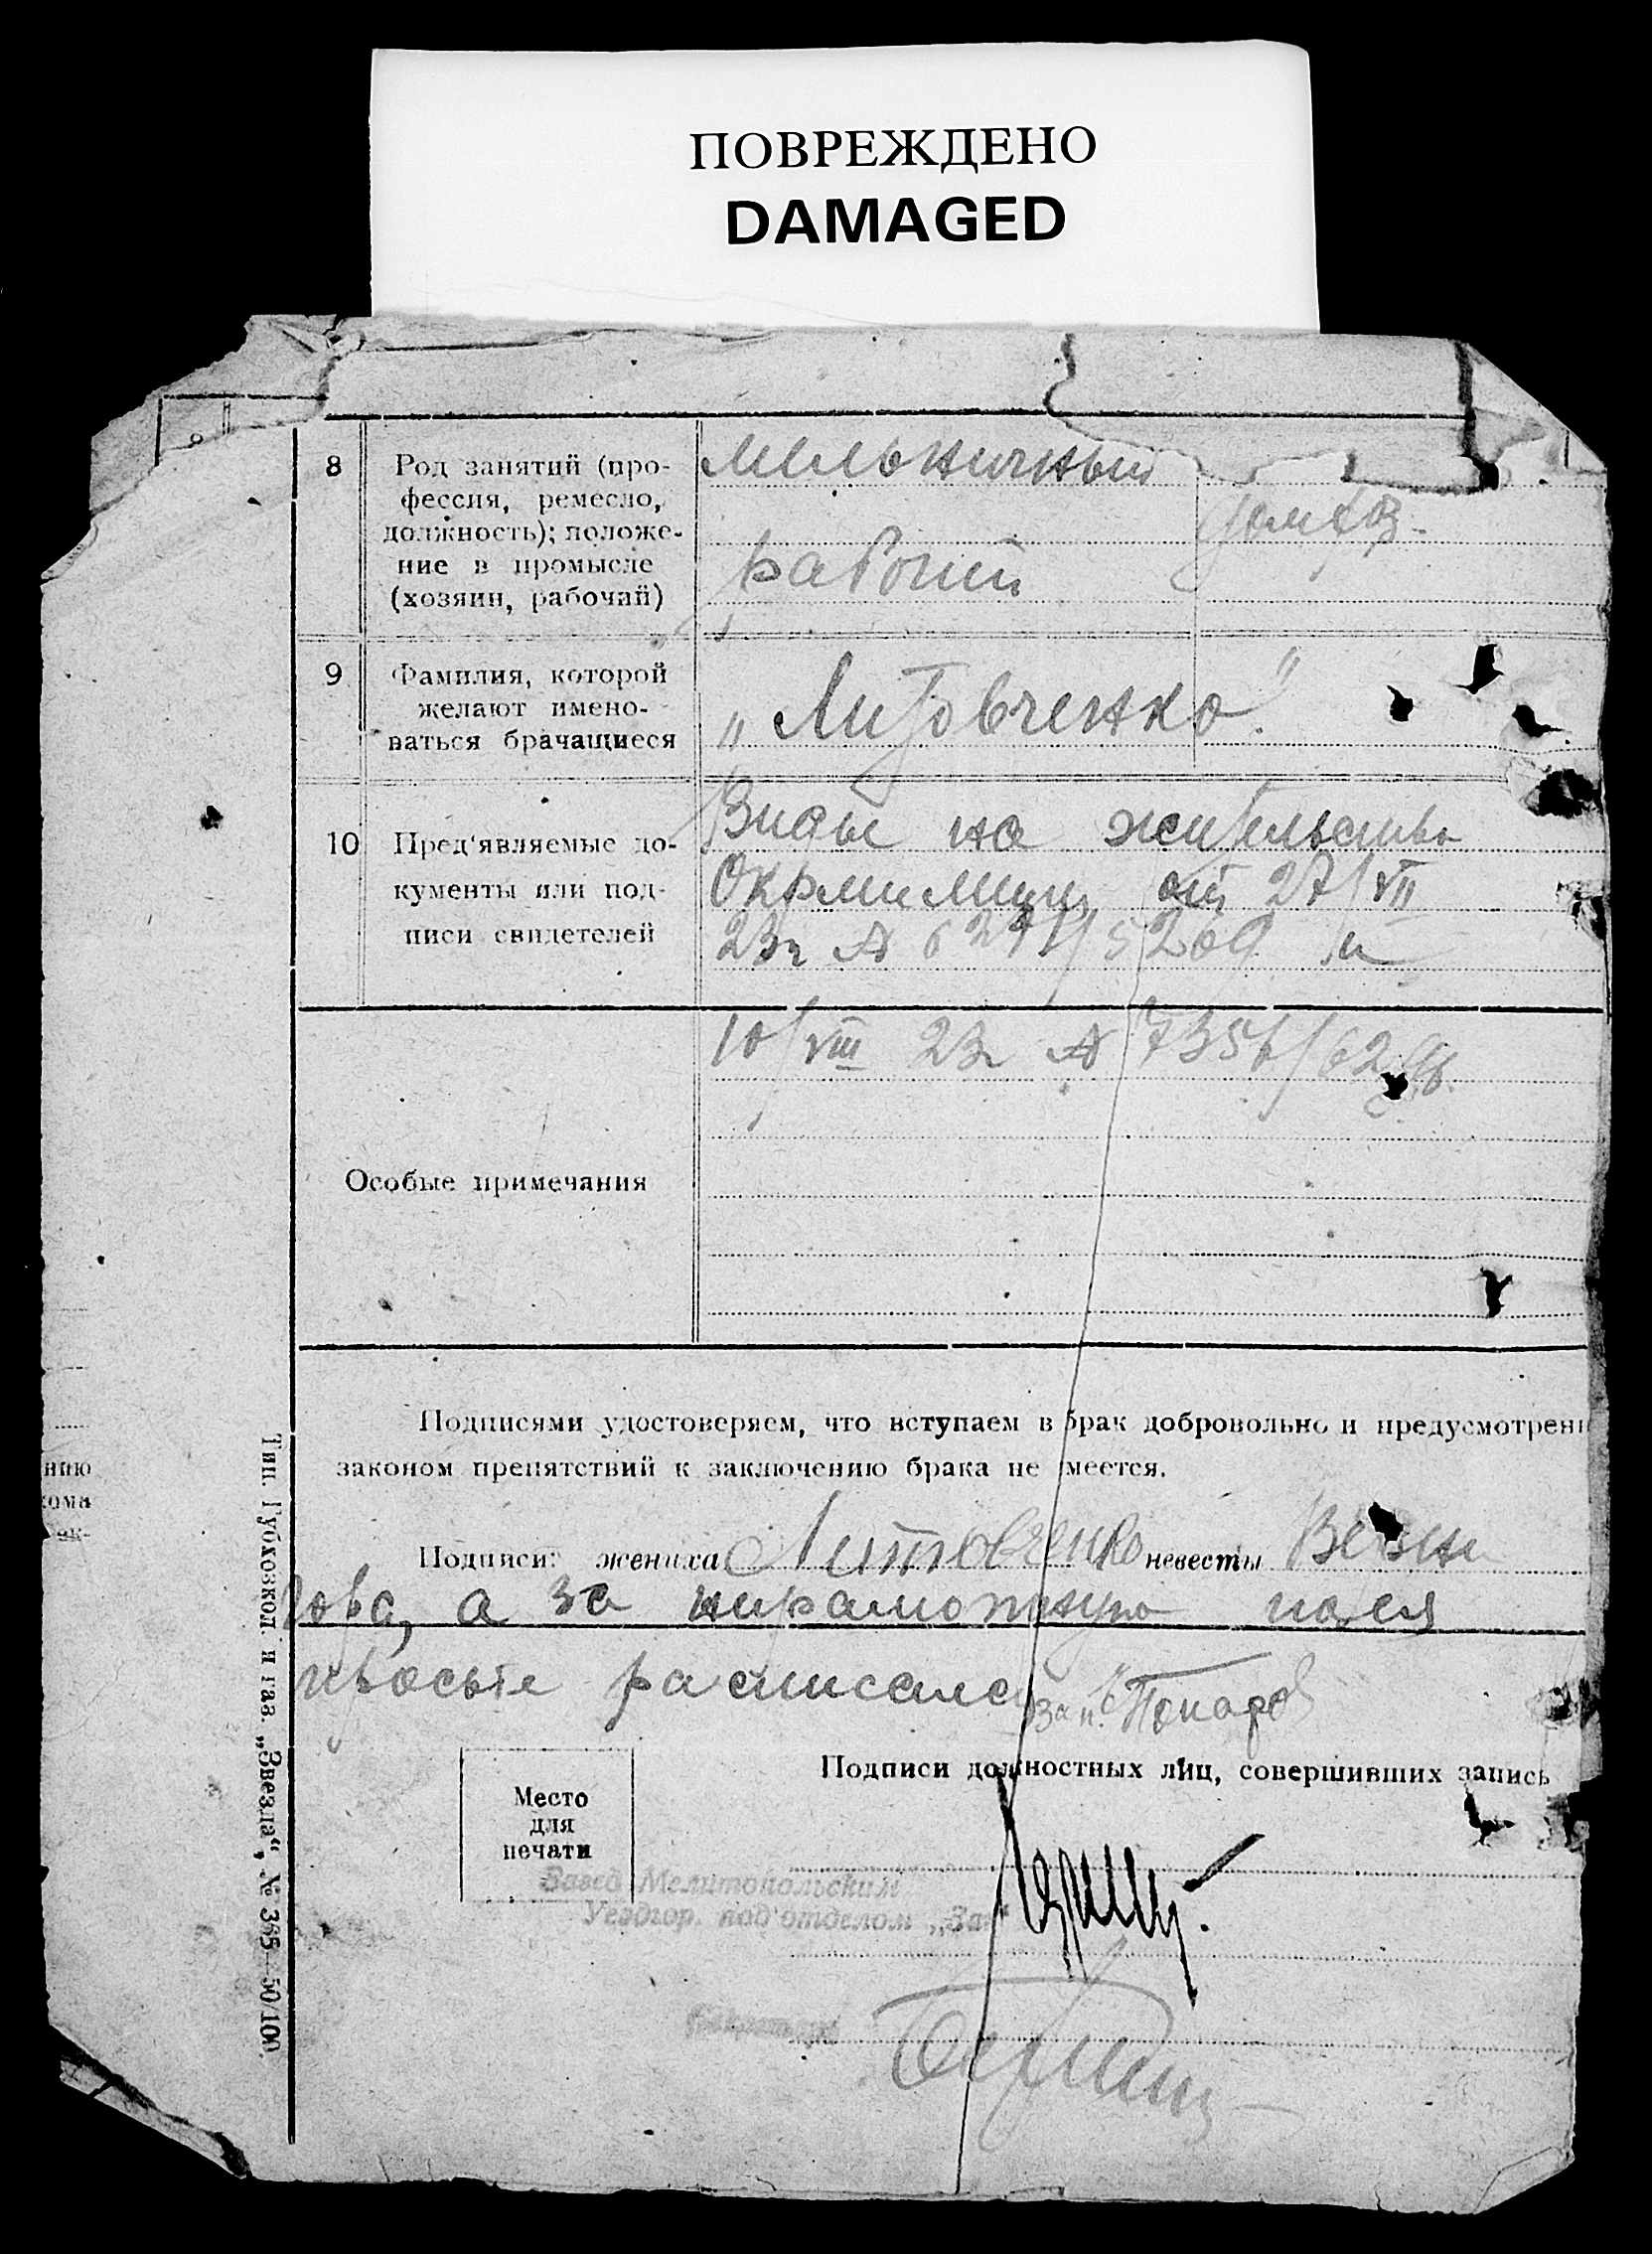 ПОВРЕЖДЕНО
DAMAGED
8 Род занятий (про-
фессия, ремесло,
должность); положе-
ние в промысле
(хозяин, рабочий)
мельничный
рабочий
домхоз.
9 Фамилия, которой
желают имено-
ваться брачащиеся
„Литовченко“
10 Пред'являемые до-
кументы или под-
писи свидетелей
Виды на жительство
Окрмилиции от 27/VII
23г № 6291/5269 и
10/VIII 23г № 7356/
Особые примечания
Подписями удостоверяем, что вступаем в брак добровольно и предусмотренн
законом препятствий к заключению брака не имеется.
Подписи: жениха Литовченко невесты
а за неграмотную по ея
просьбе расписался
Место
для
печати
Подписи должностных лиц, совершивших запись
Завед Мелитопольским
Уездгор. под'отделом „Заг“
нию
кома
Тип. Губхозкол и газ. „Звезда“, № 365—50/100